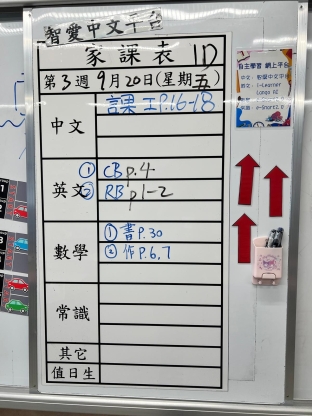 智愛中文平台
家課表 1D
第3週 9月20日(星期五)
中文 課工P.16-18
英文 ① CB p.4
② RB p1-2
數學 ① 書P.30
② 作P.6,7
常識
其它
值日生
自主學習 網上平台
中文：智愛中文平台
i-Learner